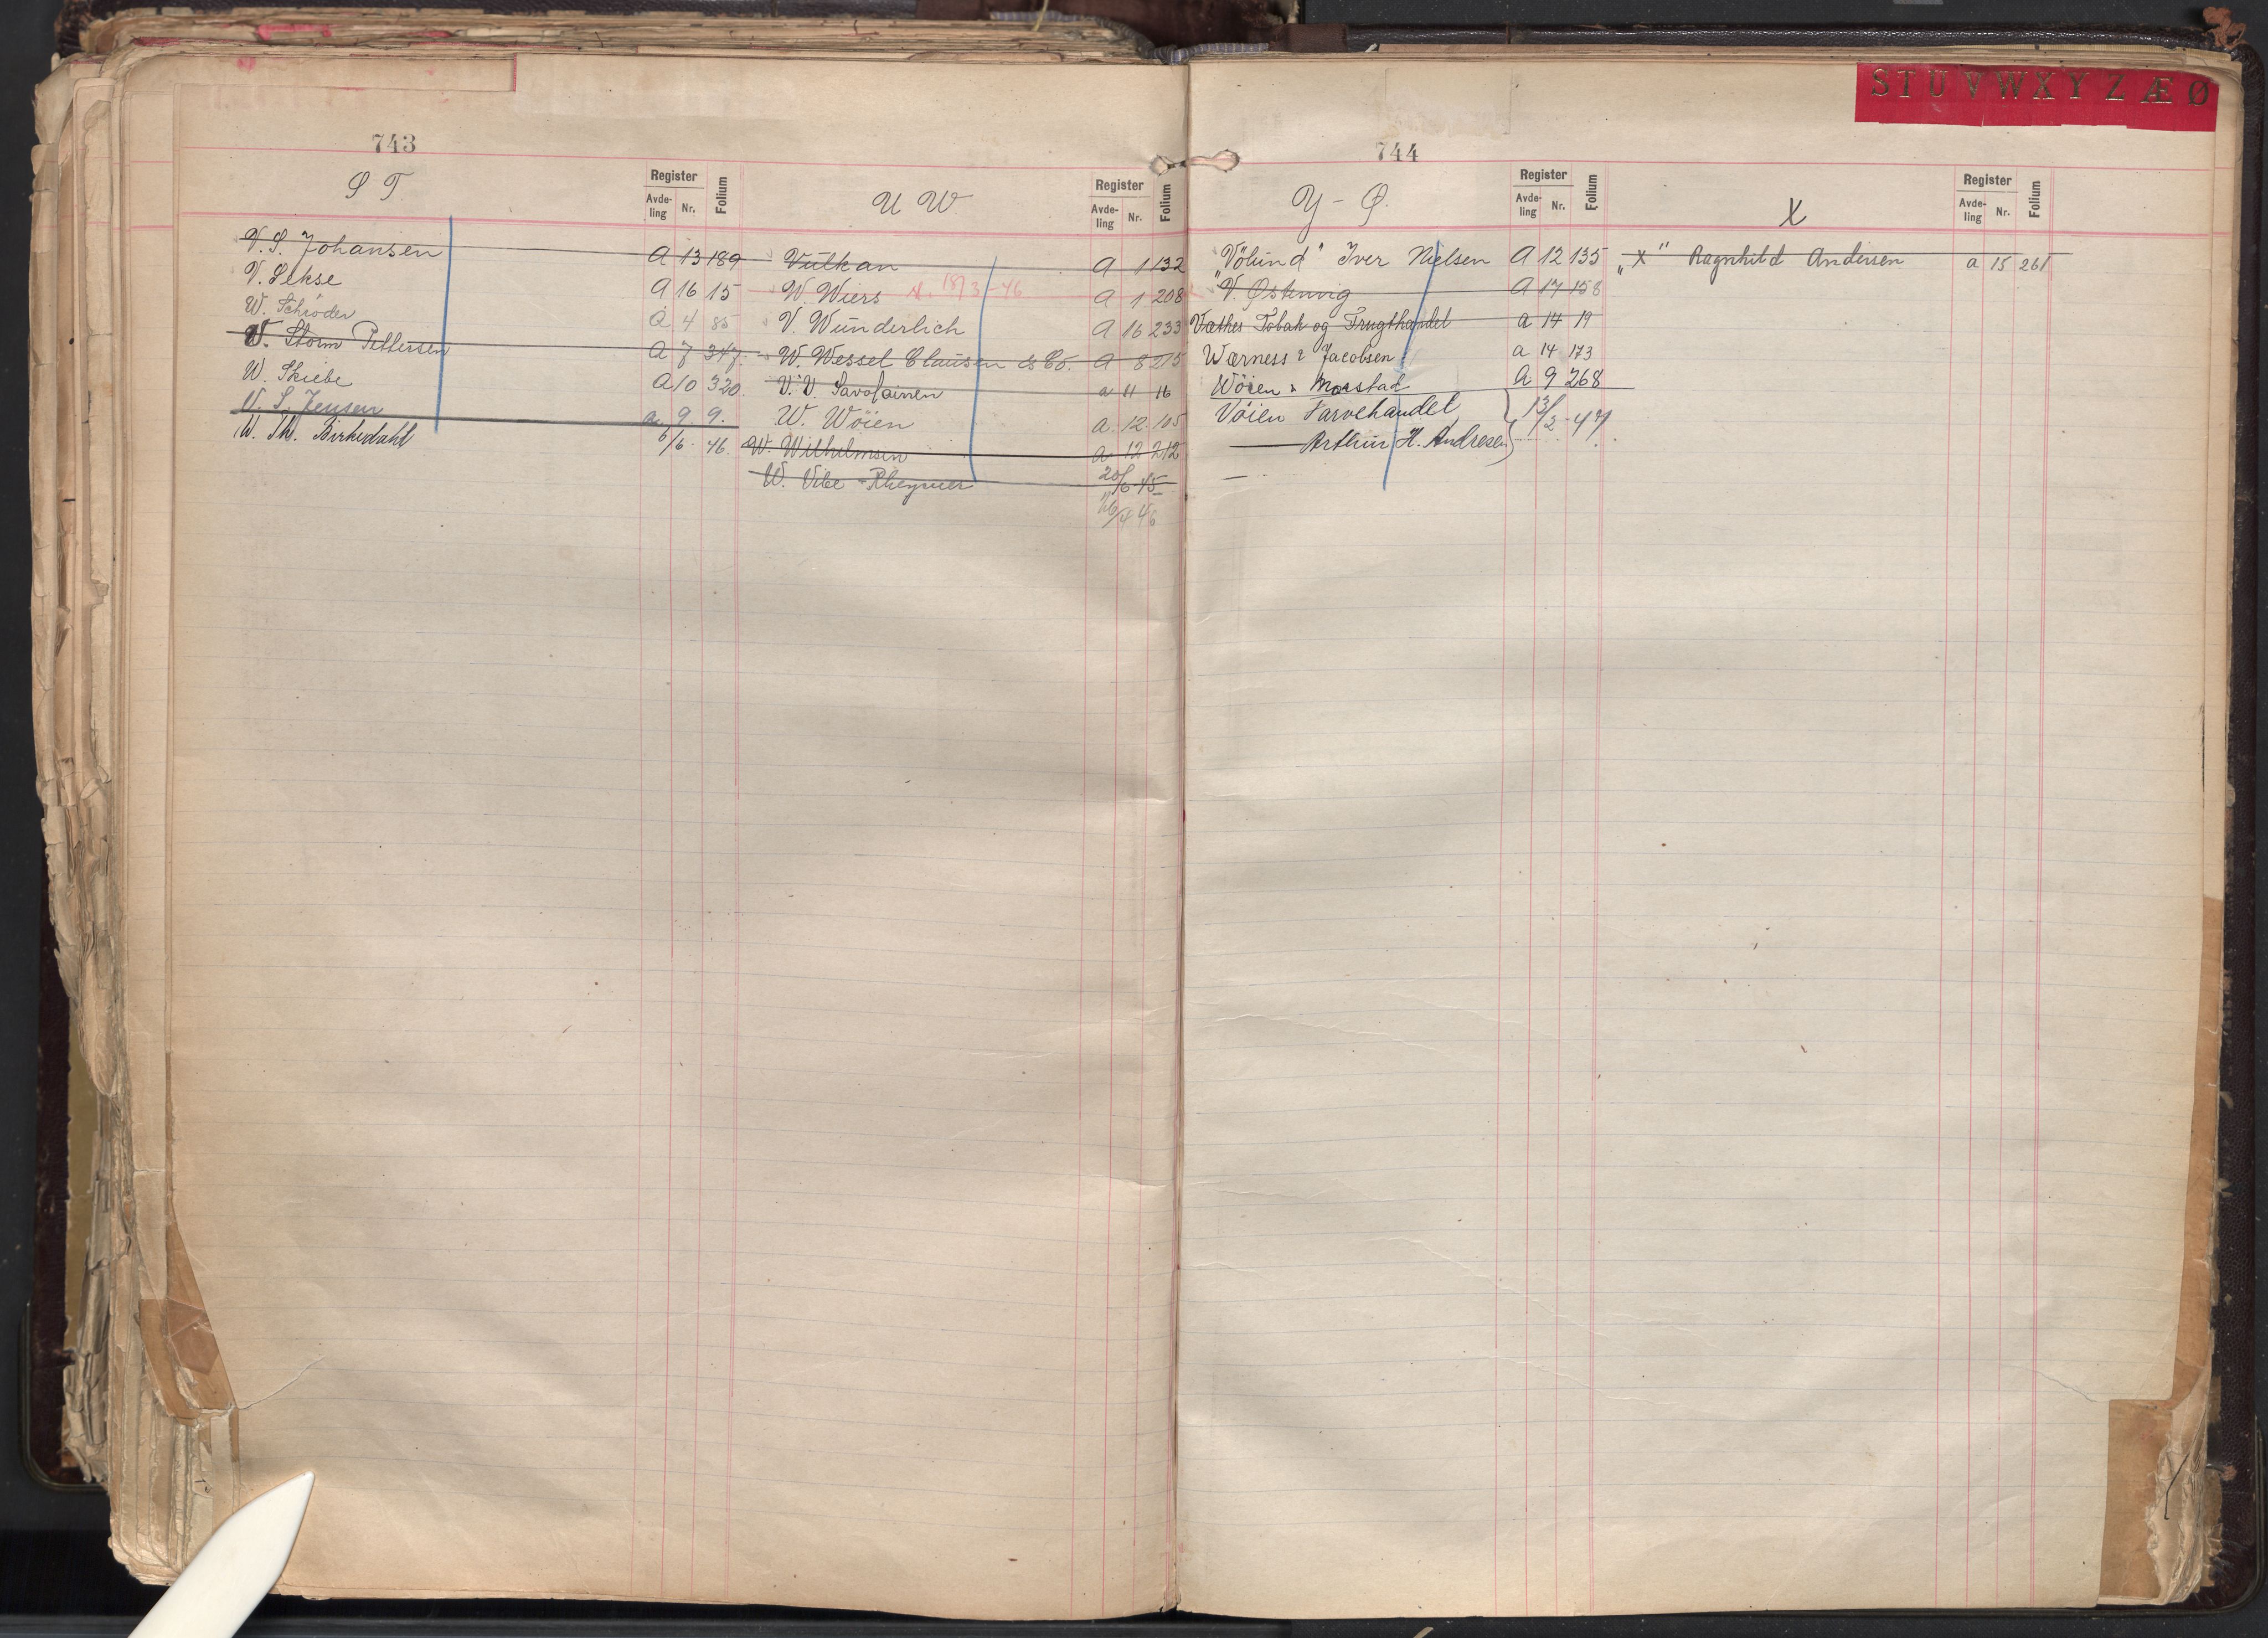 743
S T
Register
Avde-
ling
Nr.
Folium
V. S. Johansen A 13 189
V. Sekse A 16 15
W. Schröder A 4 85
W. Storm Pettersen A 7 347.
W. Skiebe A 10 320.
W. S. Jensen a 9. 9.
W. Th. Birkedahl 6/6 46.
U W.
Register
Avde-
ling
Nr.
Folium
Vulkan A 1 132
W. Wiers 18/3-46 A 1 208
V. Wunderlich A 16 233
W. Wessel Clausen & Co. A 8 215
V. V. Savolainen a 11 16
W. Wöien a. 12. 105
W. Wilhelmsen a 12 212
W. Vibe - 20/6-45
16/4 46
744
STUVWXYZÆØ
Y - Ø.
Register
Avde-
ling
Nr.
Folium
"Völund" Iver Nielsen A 12 135
V. Østenvig A 17 158
Tobak og Frugthandel a 14 19
Wærness & Jacobsen a 14 173
Wöien & Morstad A 9 268
Vöien Farvehandel } 13/2-47
Arthur H. Andresen
X
Register
Avde-
ling
Nr.
Folium
"X" Ragnhild Andersen a 15 261